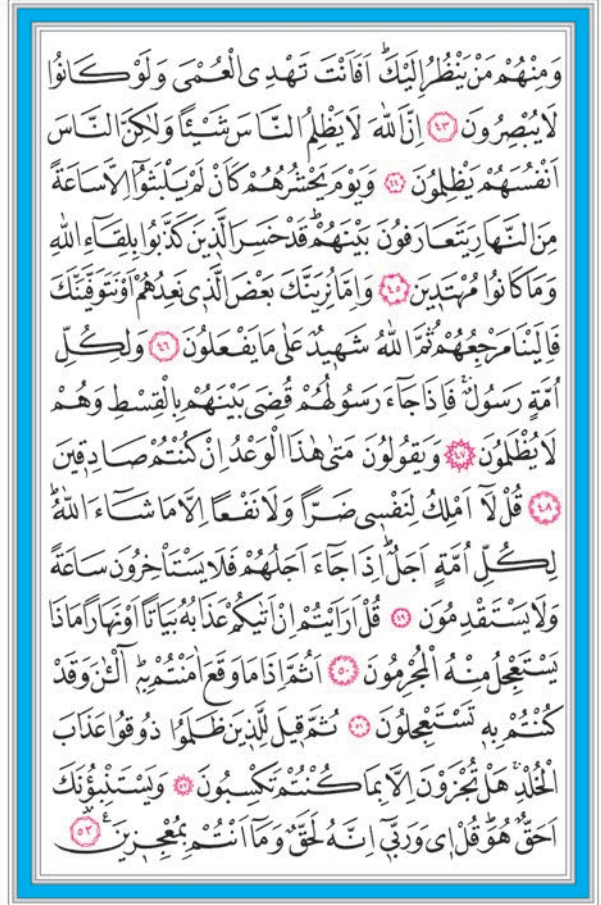 وَمِنْهُمْ مَنْ يَنْظُرُ اِلَيْكَۜ اَفَاَنْتَ تَهْدِي الْعُمْيَ وَلَوْ كَانُوا
لَا يُبْصِرُونَ ﴿٤٣﴾ اِنَّ اللّٰهَ لَا يَظْلِمُ النَّاسَ شَيْـًٔا وَلٰكِنَّ النَّاسَ
اَنْفُسَهُمْ يَظْلِمُونَ ﴿٤٤﴾ وَيَوْمَ يَحْشُرُهُمْ كَاَنْ لَمْ يَلْبَثُٓوا اِلَّا سَاعَةً
مِنَ النَّهَارِ يَتَعَارَفُونَ بَيْنَهُمْۜ قَدْ خَسِرَ الَّذ۪ينَ كَذَّبُوا بِلِقَٓاءِ اللّٰهِ
وَمَا كَانُوا مُهْتَد۪ينَ ﴿٤٥﴾ وَاِمَّا نُرِيَنَّكَ بَعْضَ الَّذ۪ي نَعِدُهُمْ اَوْ نَتَوَفَّيَنَّكَ
فَاِلَيْنَا مَرْجِعُهُمْ ثُمَّ اللّٰهُ شَه۪يدٌ عَلٰى مَا يَفْعَلُونَ ﴿٤٦﴾ وَلِكُلِّ
اُمَّةٍ رَسُولٌۚ فَاِذَا جَٓاءَ رَسُولُهُمْ قُضِيَ بَيْنَهُمْ بِالْقِسْطِ وَهُمْ
لَا يُظْلَمُونَ ﴿٤٧﴾ وَيَقُولُونَ مَتٰى هٰذَا الْوَعْدُ اِنْ كُنْتُمْ صَادِق۪ينَ
﴿٤٨﴾ قُلْ لَٓا اَمْلِكُ لِنَفْس۪ي ضَرًّا وَلَا نَفْعًا اِلَّا مَا شَٓاءَ اللّٰهُۜ
لِكُلِّ اُمَّةٍ اَجَلٌۜ اِذَا جَٓاءَ اَجَلُهُمْ فَلَا يَسْتَأْخِرُونَ سَاعَةً
وَلَا يَسْتَقْدِمُونَ ﴿٤٩﴾ قُلْ اَرَاَيْتُمْ اِنْ اَتٰيكُمْ عَذَابُهُ بَيَاتًا اَوْ نَهَارًا مَاذَا
يَسْتَعْجِلُ مِنْهُ الْمُجْرِمُونَ ﴿٥٠﴾ اَثُمَّ اِذَا مَا وَقَعَ اٰمَنْتُمْ بِه۪ۜ آٰلْـٰٔنَ وَقَدْ
كُنْتُمْ بِه۪ تَسْتَعْجِلُونَ ﴿٥١﴾ ثُمَّ ق۪يلَ لِلَّذ۪ينَ ظَلَمُوا ذُوقُوا عَذَابَ
الْخُلْدِۚ هَلْ تُجْزَوْنَ اِلَّا بِمَا كُنْتُمْ تَكْسِبُونَ ﴿٥٢﴾ وَيَسْتَنْبِؤُ۫نَكَ
اَحَقٌّ هُوَۜ قُلْ ا۪ي وَرَبّ۪ٓي اِنَّهُ لَحَقٌّۚ وَمَٓا اَنْتُمْ بِمُعْجِز۪ينَ۟ ﴿٥٣﴾